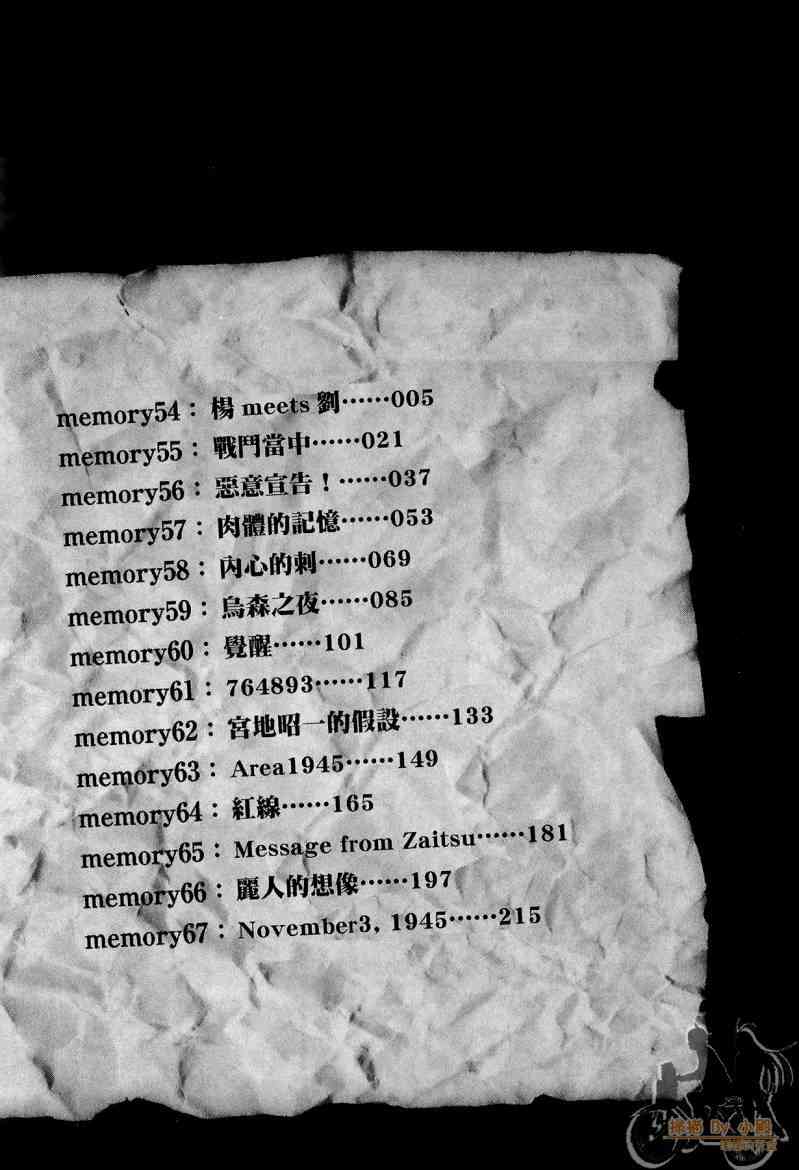 memory54：楊 meets 劉……005
memory55：戰鬥當中……021
memory56：惡意宣告！……037
memory57：肉體的記憶……053
memory58：內心的刺……069
memory59：烏森之夜……085
memory60：覺醒……101
memory61：764893……117
memory62：宮地昭一的假設……133
memory63：Area1945……149
memory64：紅線……165
memory65：Message from Zaitsu……181
memory66：麗人的想像……197
memory67：November3, 1945……215
掃描 By 小鵬